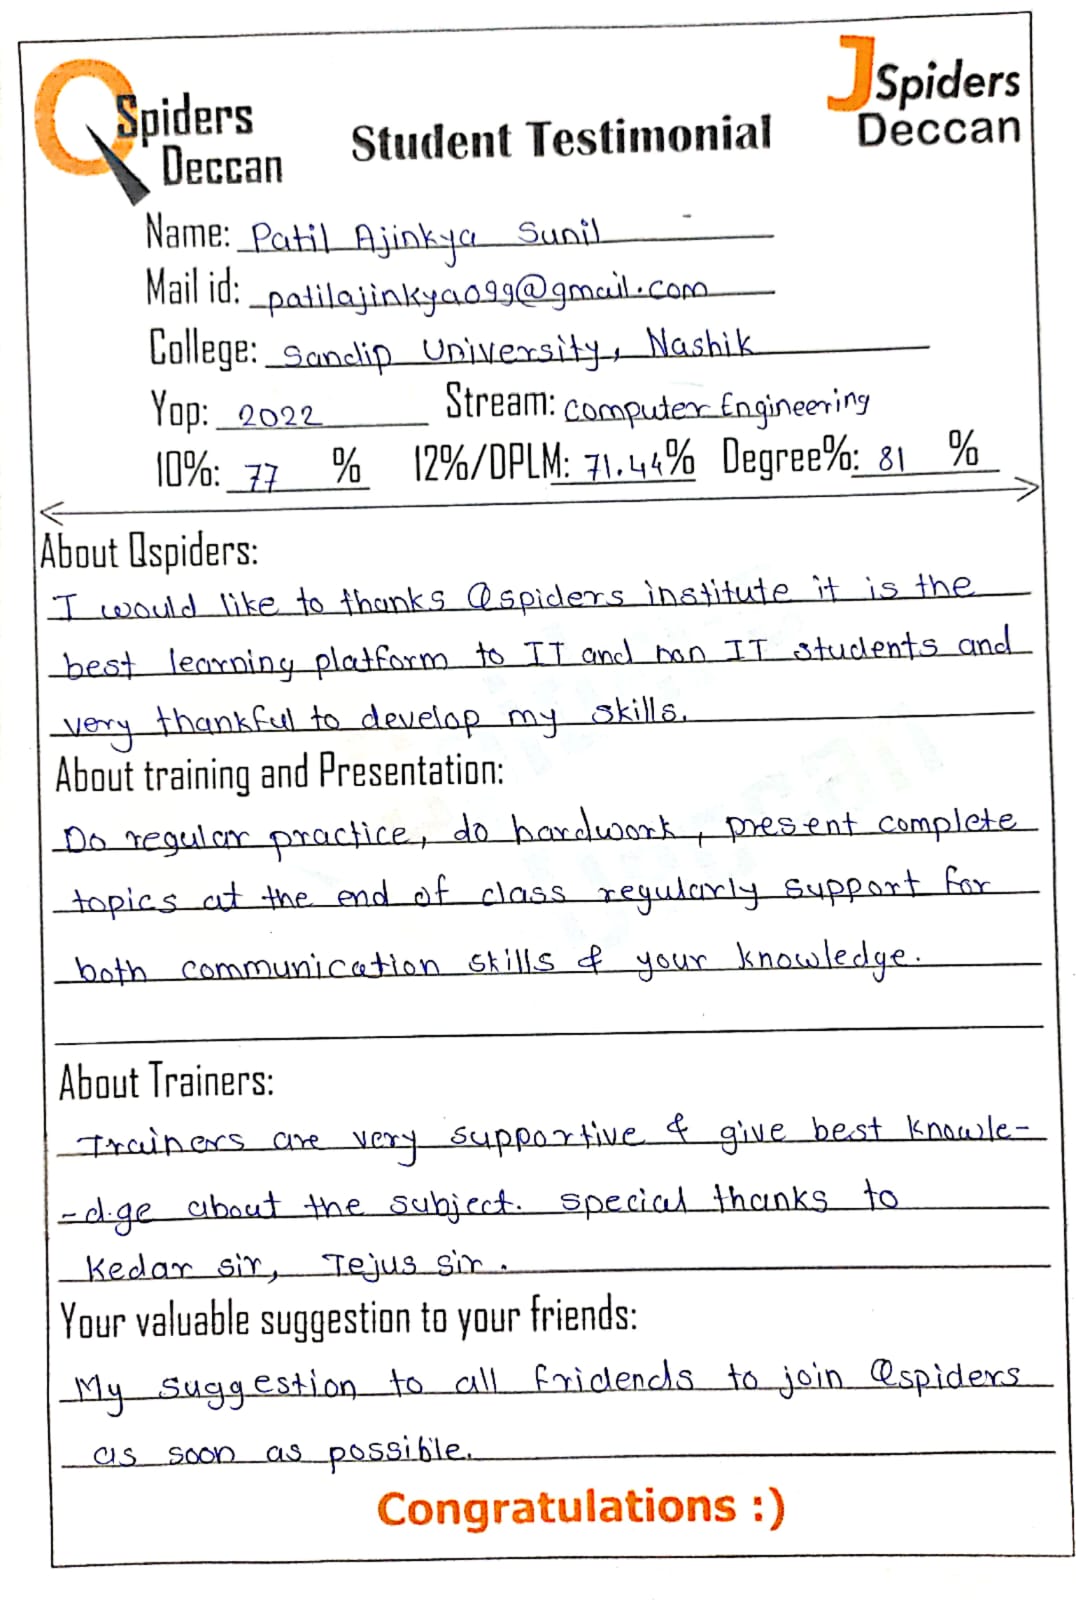 QSpiders Deccan
Student Testimonial
JSpiders Deccan
Name: Patil Ajinkya Sunil
Mail id: patilajinkya099@gmail.com
College: Sandip University, Nashik
Yop: 2022 Stream: Computer Engineering
10%: 77 % 12%/DPLM: 71.44% Degree%: 81 %
About Qspiders:
I would like to thanks Qspiders institute it is the
best learning platform to IT and non IT students and
very thankful to develop my skills.
About training and Presentation:
Do regular practice, do hardwork, present complete
topics at the end of class regularly support for
both communication skills & your knowledge.
About Trainers:
Trainers are very supportive & give best knowle-
-dge about the subject. special thanks to
Kedar sir, Tejus sir.
Your valuable suggestion to your friends:
My suggestion to all fridends to join Qspiders
as soon as possible.
Congratulations :)